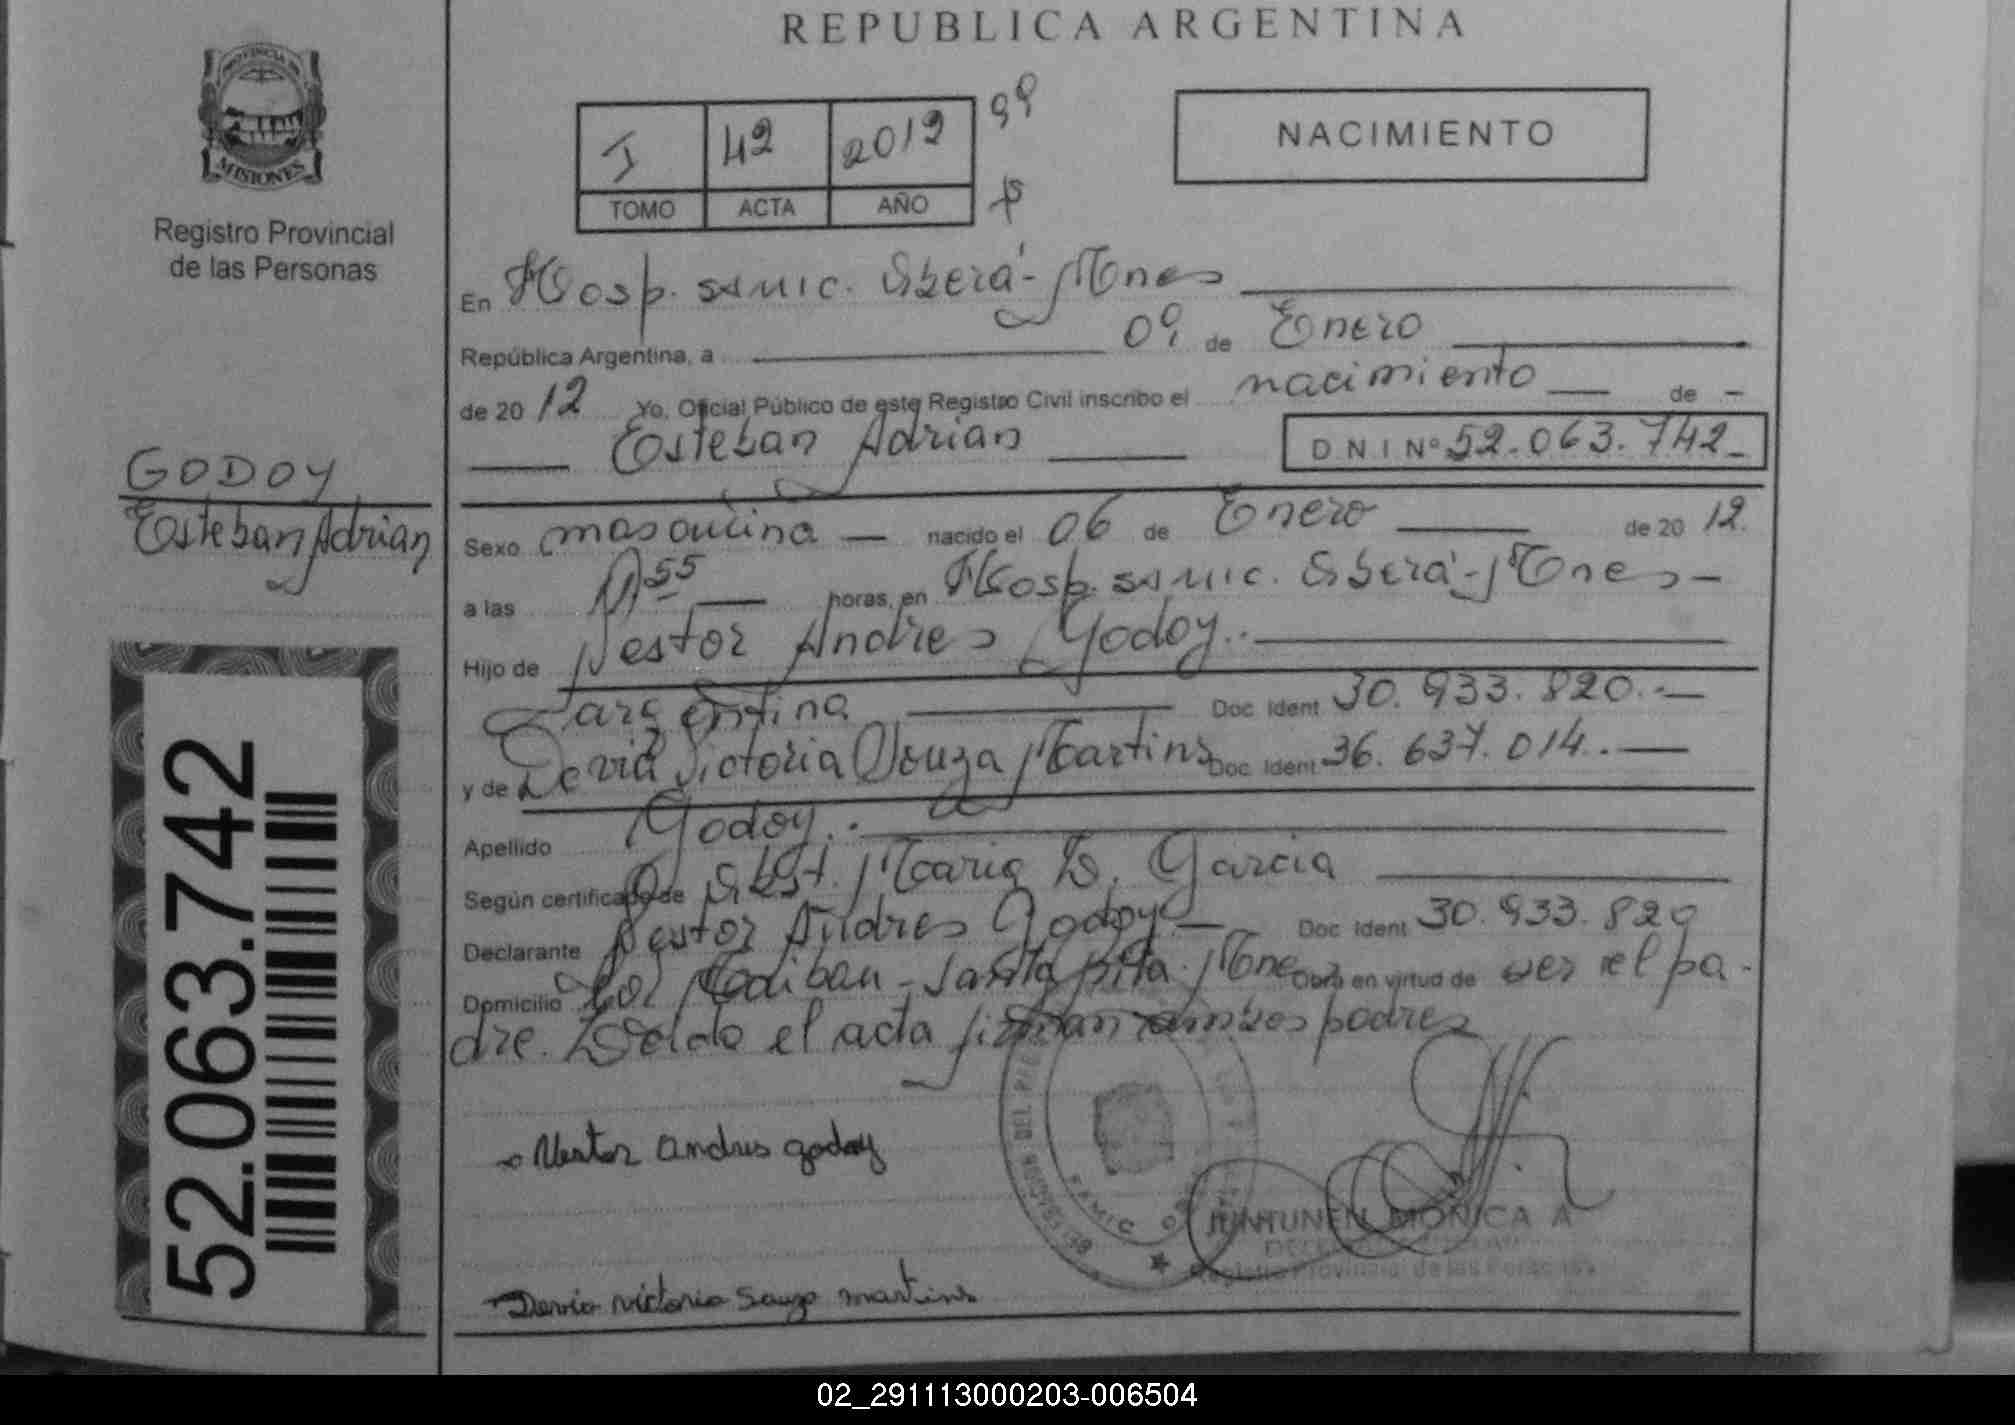 REPUBLICA ARGENTINA
PROVINCIA DE
MISIONES
Registro Provincial
de las Personas
I 42 2012
TOMO ACTA AÑO
NACIMIENTO
En Hosp. samic. Oberá- Mnes
República Argentina, a 09 de Enero
de 20 12 Yo, Oficial Público de este Registro Civil inscribo el nacimiento de
Esteban Adrian DNI Nº 52.063.742
GODOY
Esteban Adrian
Sexo masculino nacido el 06 de Enero de 20 12.
a las horas, en Hosp. samic. Oberá- Mnes
Hijo de Nestor Andres Godoy..
argentina Doc Ident 30.933.820.-
y de Victoria Souza Martins Doc Ident 36.637.014..
Apellido Godoy..
Según certificado de Obst. Maria D. Garcia
Declarante Nestor Andres Godoy Doc Ident 30.933.820
Domicilio Santa Rita. Mnes Obra en virtud de ser el pa-
dre. Leida el acta firman ambos padres
52.063.742
Nestor andres godoy
JUNTUNEN MONICA A
Registro Provincial de las Personas
victoria Souza martins
02_291113000203-006504